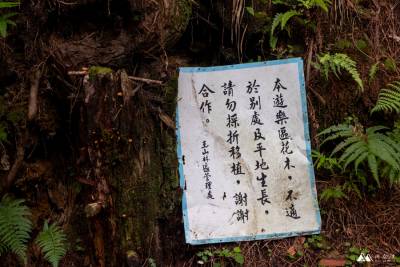 本遊樂區花木，不適
於別處及平地生長，
請勿採折移植，謝謝
合作。
玉山林區管理處